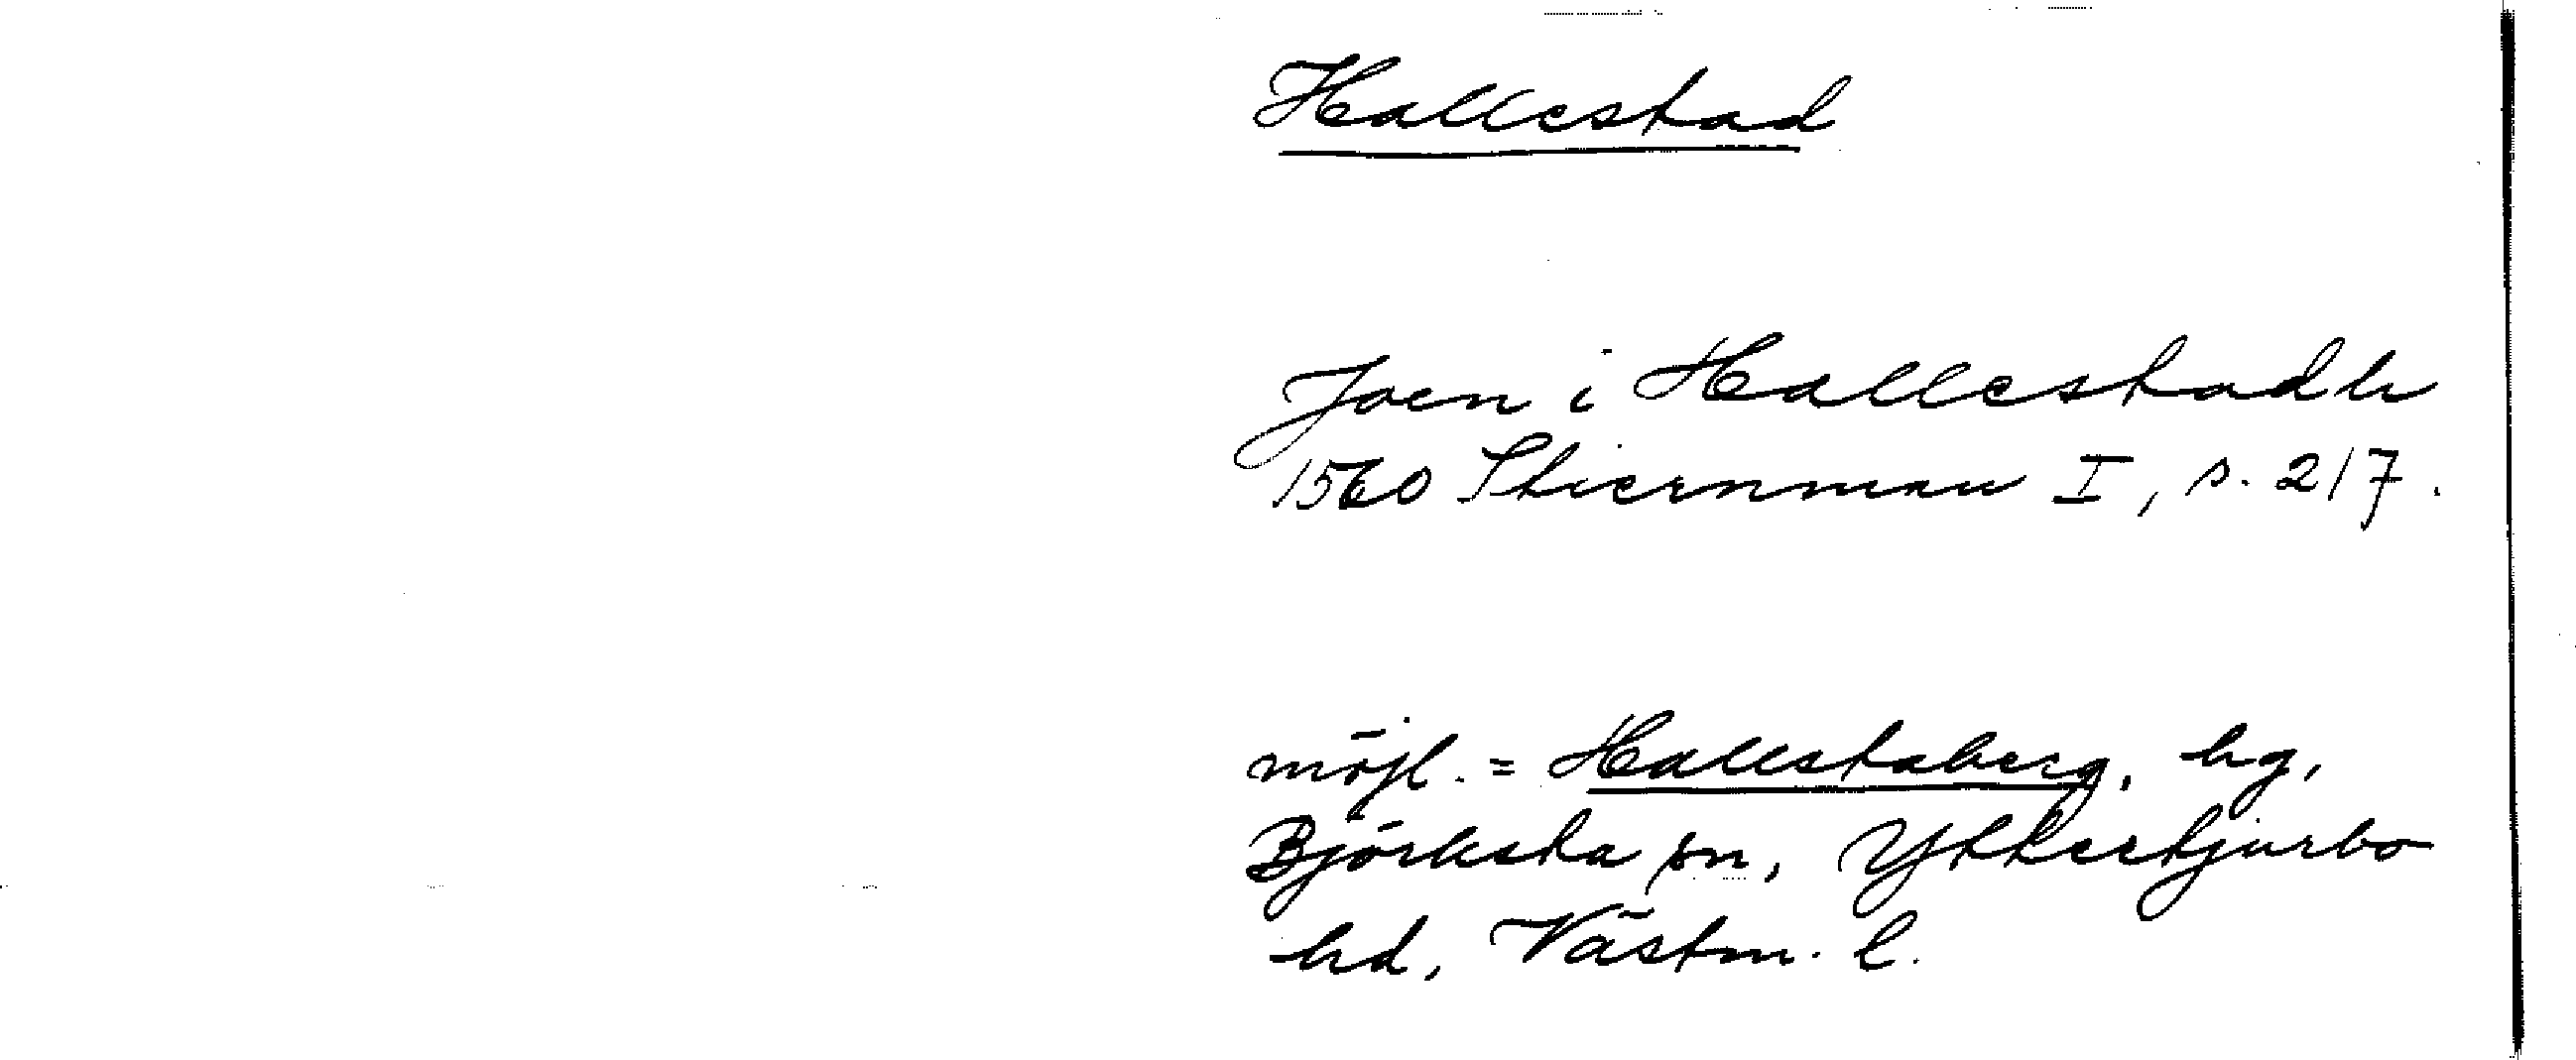 Hallestad
Joen i Hallestadh
1560 Stiernman I, s. 217.
möjl. = Hallstaberg, hg,
Björksta sn, Yttertjurbo
hd, Västm. l.